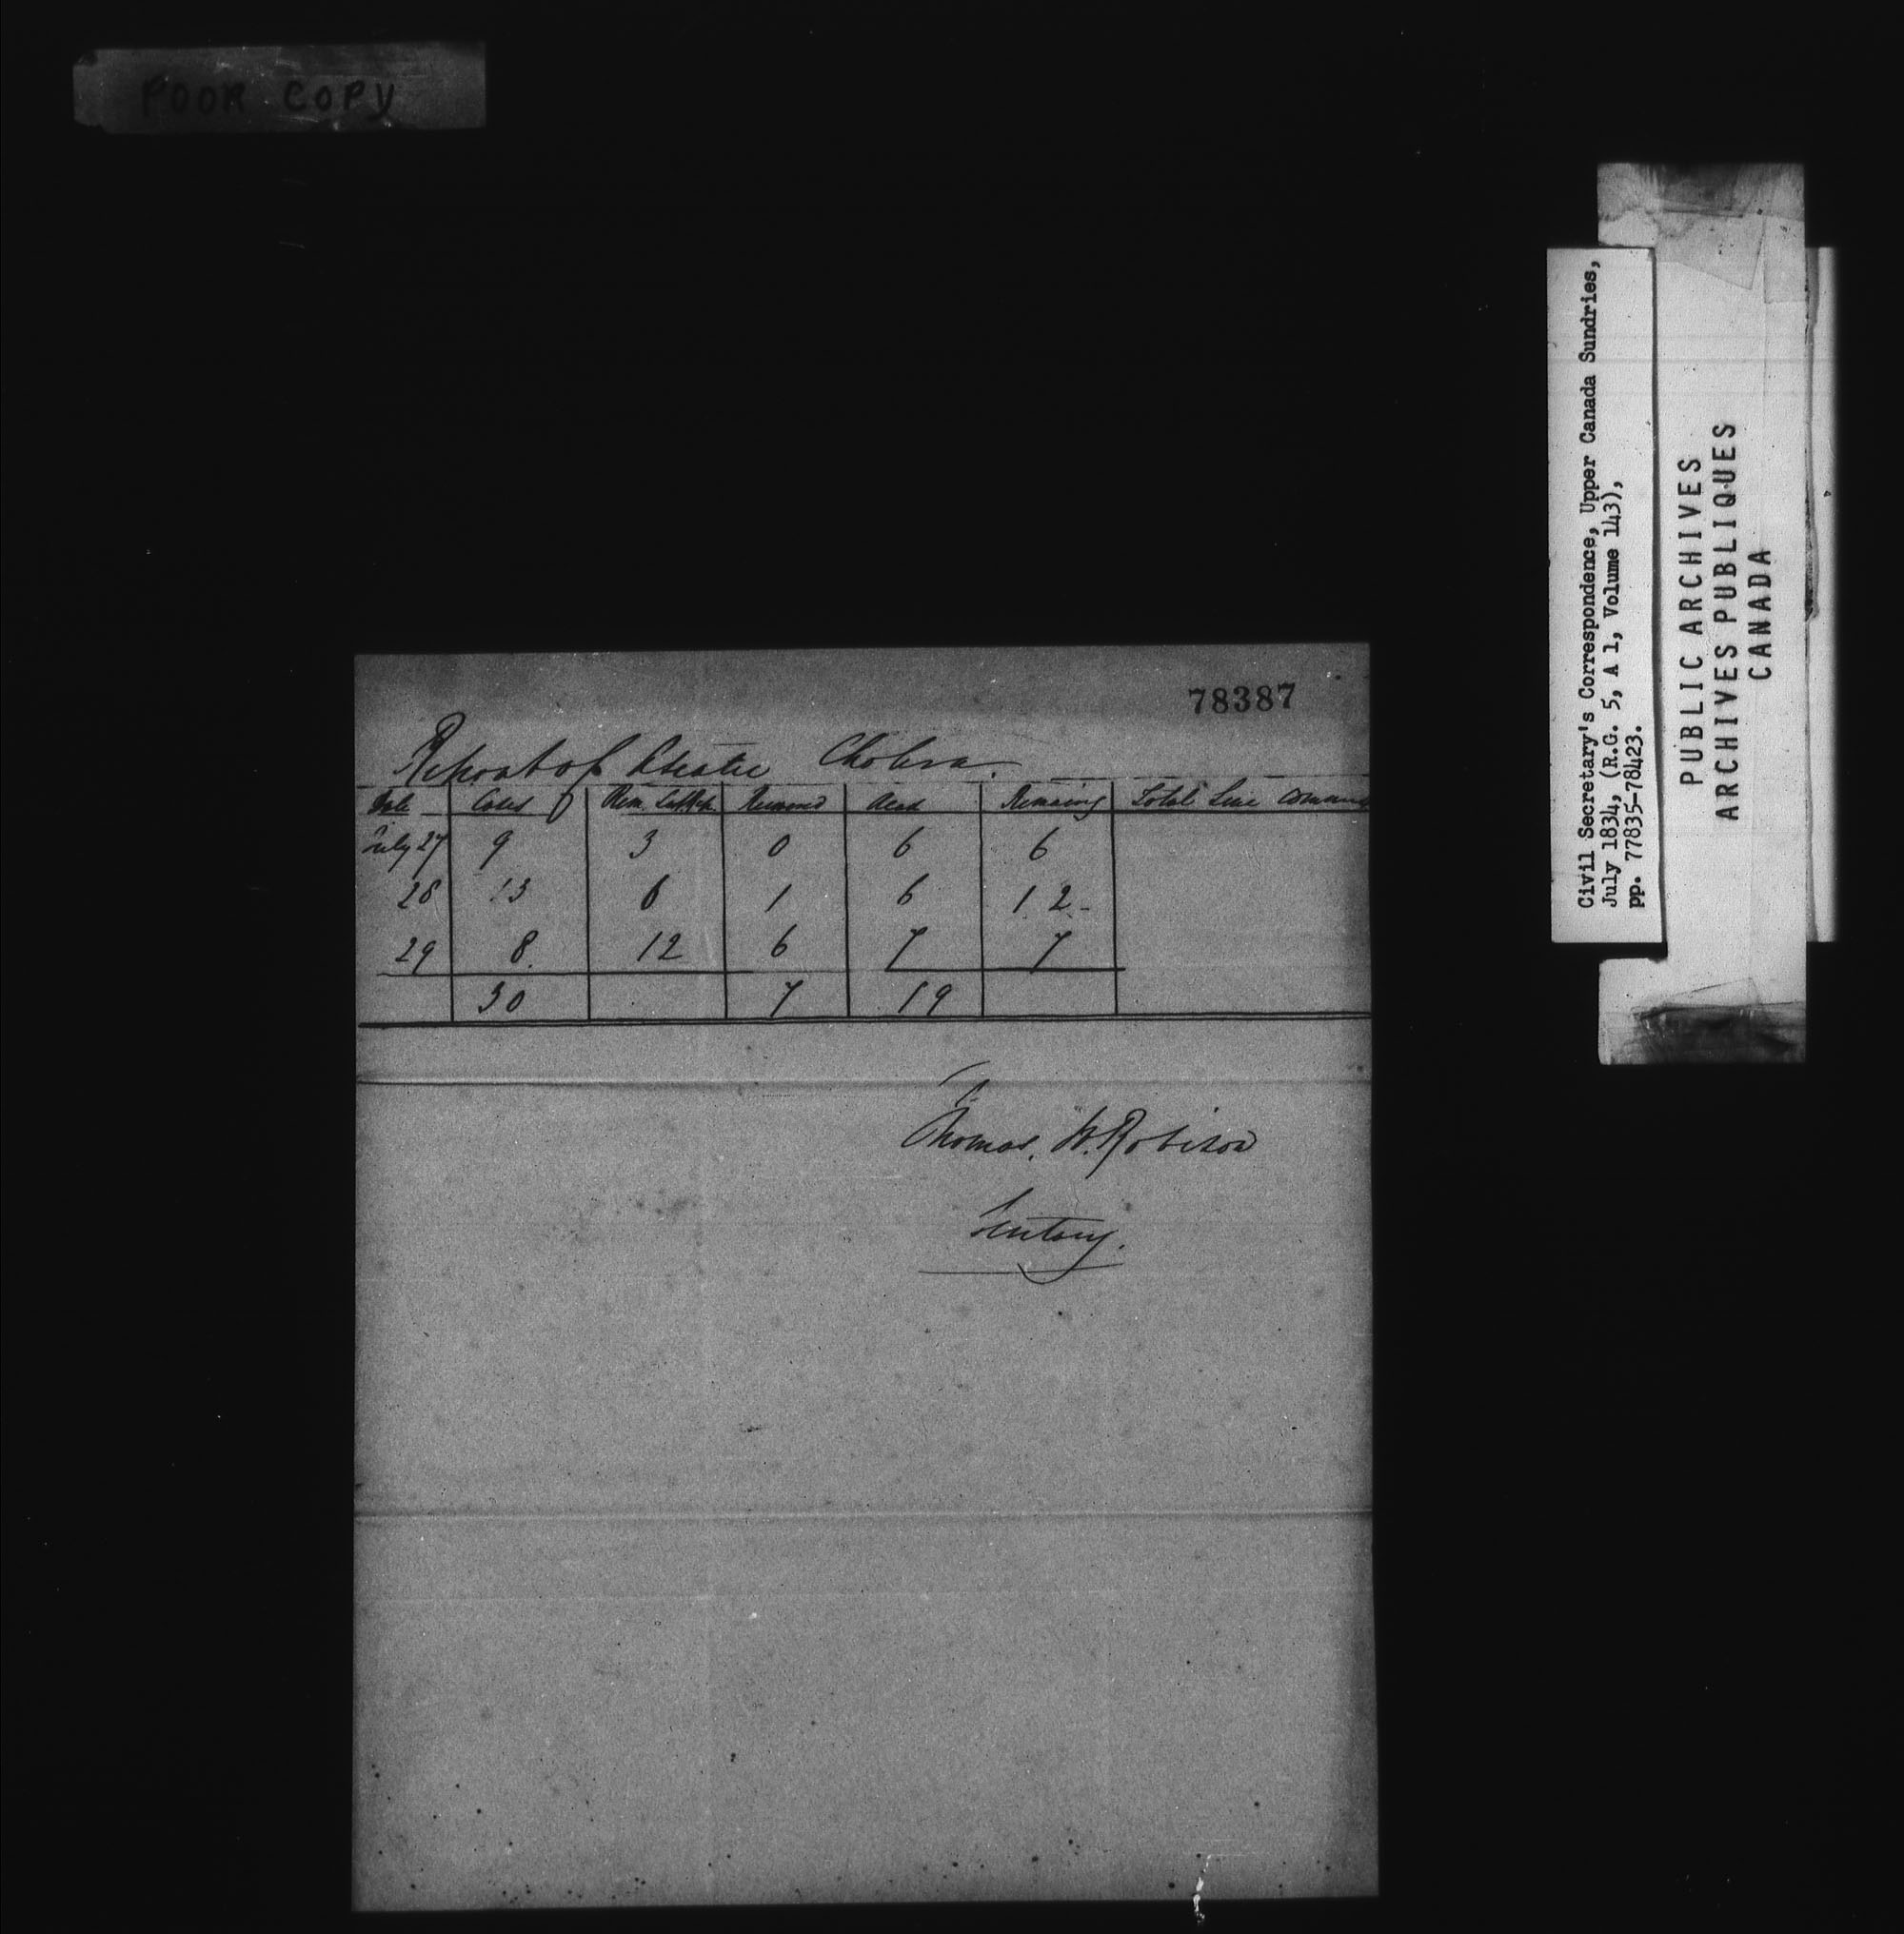 POOR COPY
78387
Report of Asiatic Cholera.
Date Cases Rem. Last Rep. Removed Dead Remaing Total Sine Commenc
July 27 9 3 0 6 6
28 13 6 1 6 12
29 8. 12 6 7 7
30 7 19
Thomas. W. Robison
Secretary.
Civil Secretary's Correspondence, Upper Canada Sundries,
July 1834, (R.G. 5, A 1, Volume 143),
pp. 77835-78423.
PUBLIC ARCHIVES
ARCHIVES PUBLIQUES
CANADA